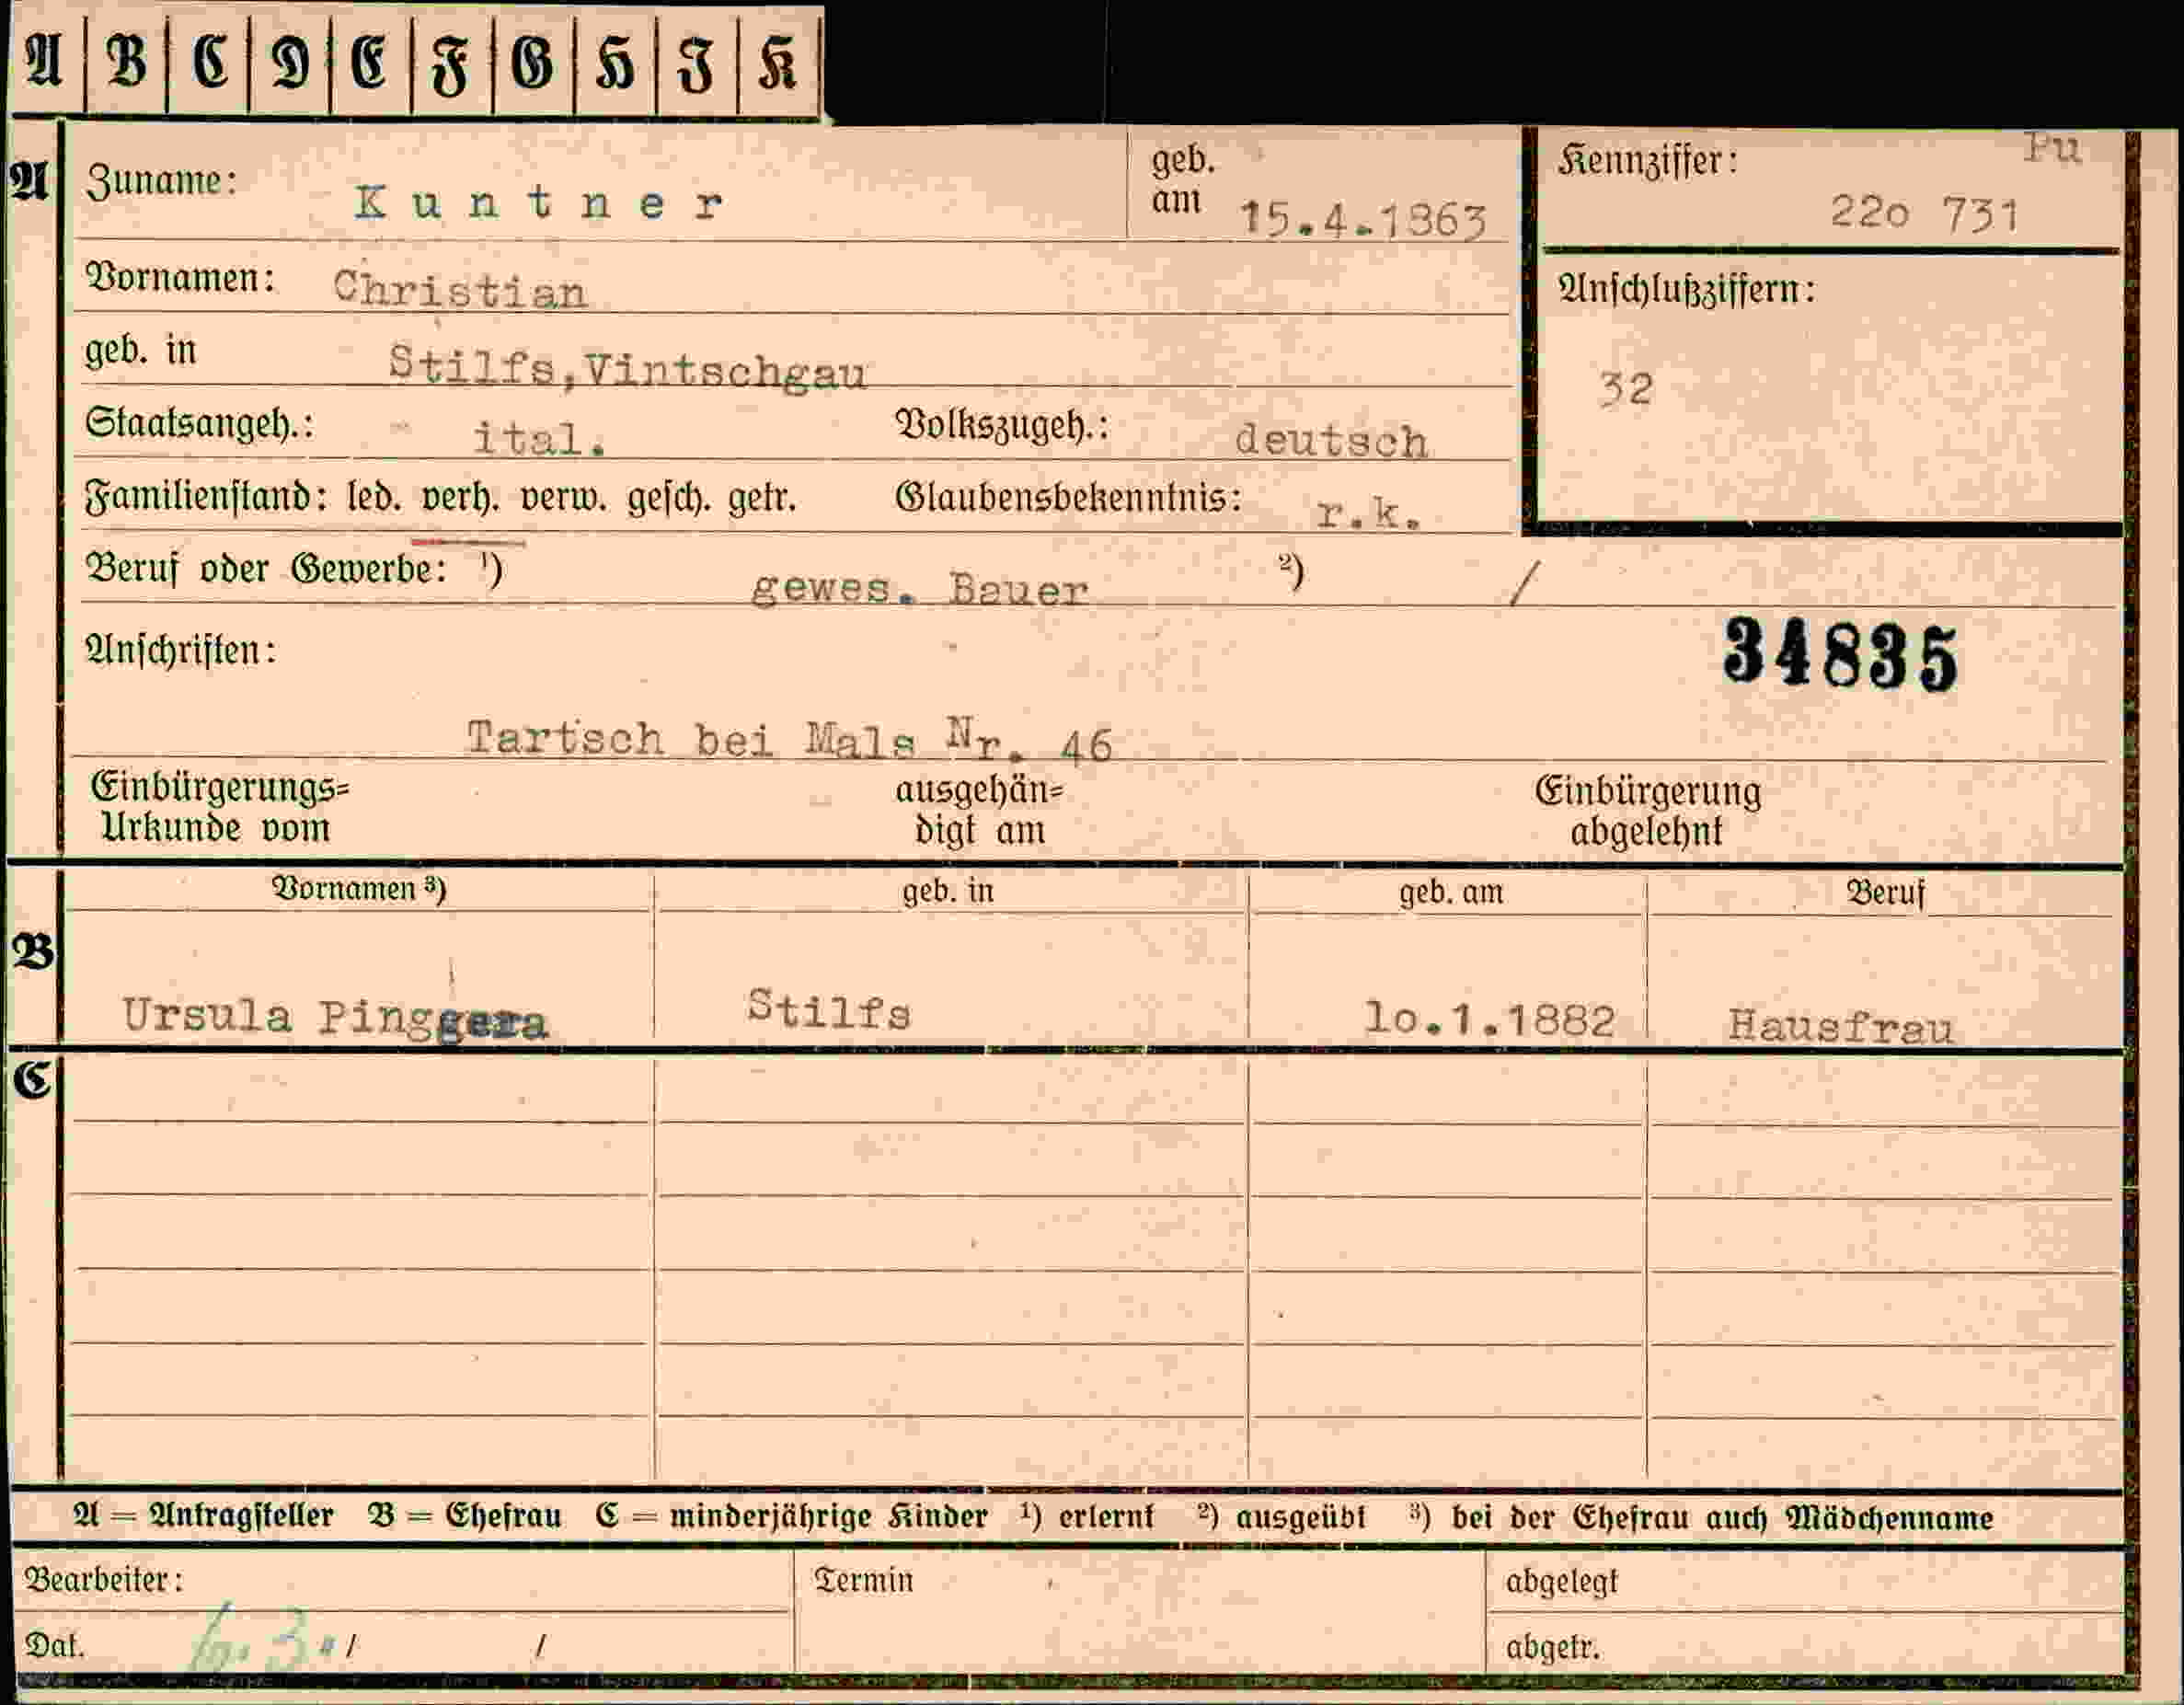 A B C D E F G H J K
Pu
A Zuname: Kuntner geb. am 15.4.1863 Kennziffer: 22o 731
Vornamen: Christian
Anschlußziffern:
geb. in Stilfs,Vintschgau
32
Staatsangeh.: ital. Volkszugeh.: deutsch
Familienstand: led. verh. verw. gesch. getr. Glaubensbekenntnis: r.k.
Beruf oder Gewerbe: 1) gewes. Bauer 2) /
Anschriften: 34835
Tartsch bei Mals Nr. 46
Einbürgerungs= ausgehän= Einbürgerung
Urkunde vom digt am abgelehnt
Vornamen 3) geb. in geb. am Beruf
B Ursula Pinggera Stilfs lo.1.1882 Hausfrau
C
A = Antragsteller B = Ehefrau C = minderjährige Kinder 1) erlernt 2) ausgeübt 3) bei der Ehefrau auch Mädchenname
Bearbeiter: Termin abgelegt
Dat. / / abgetr.